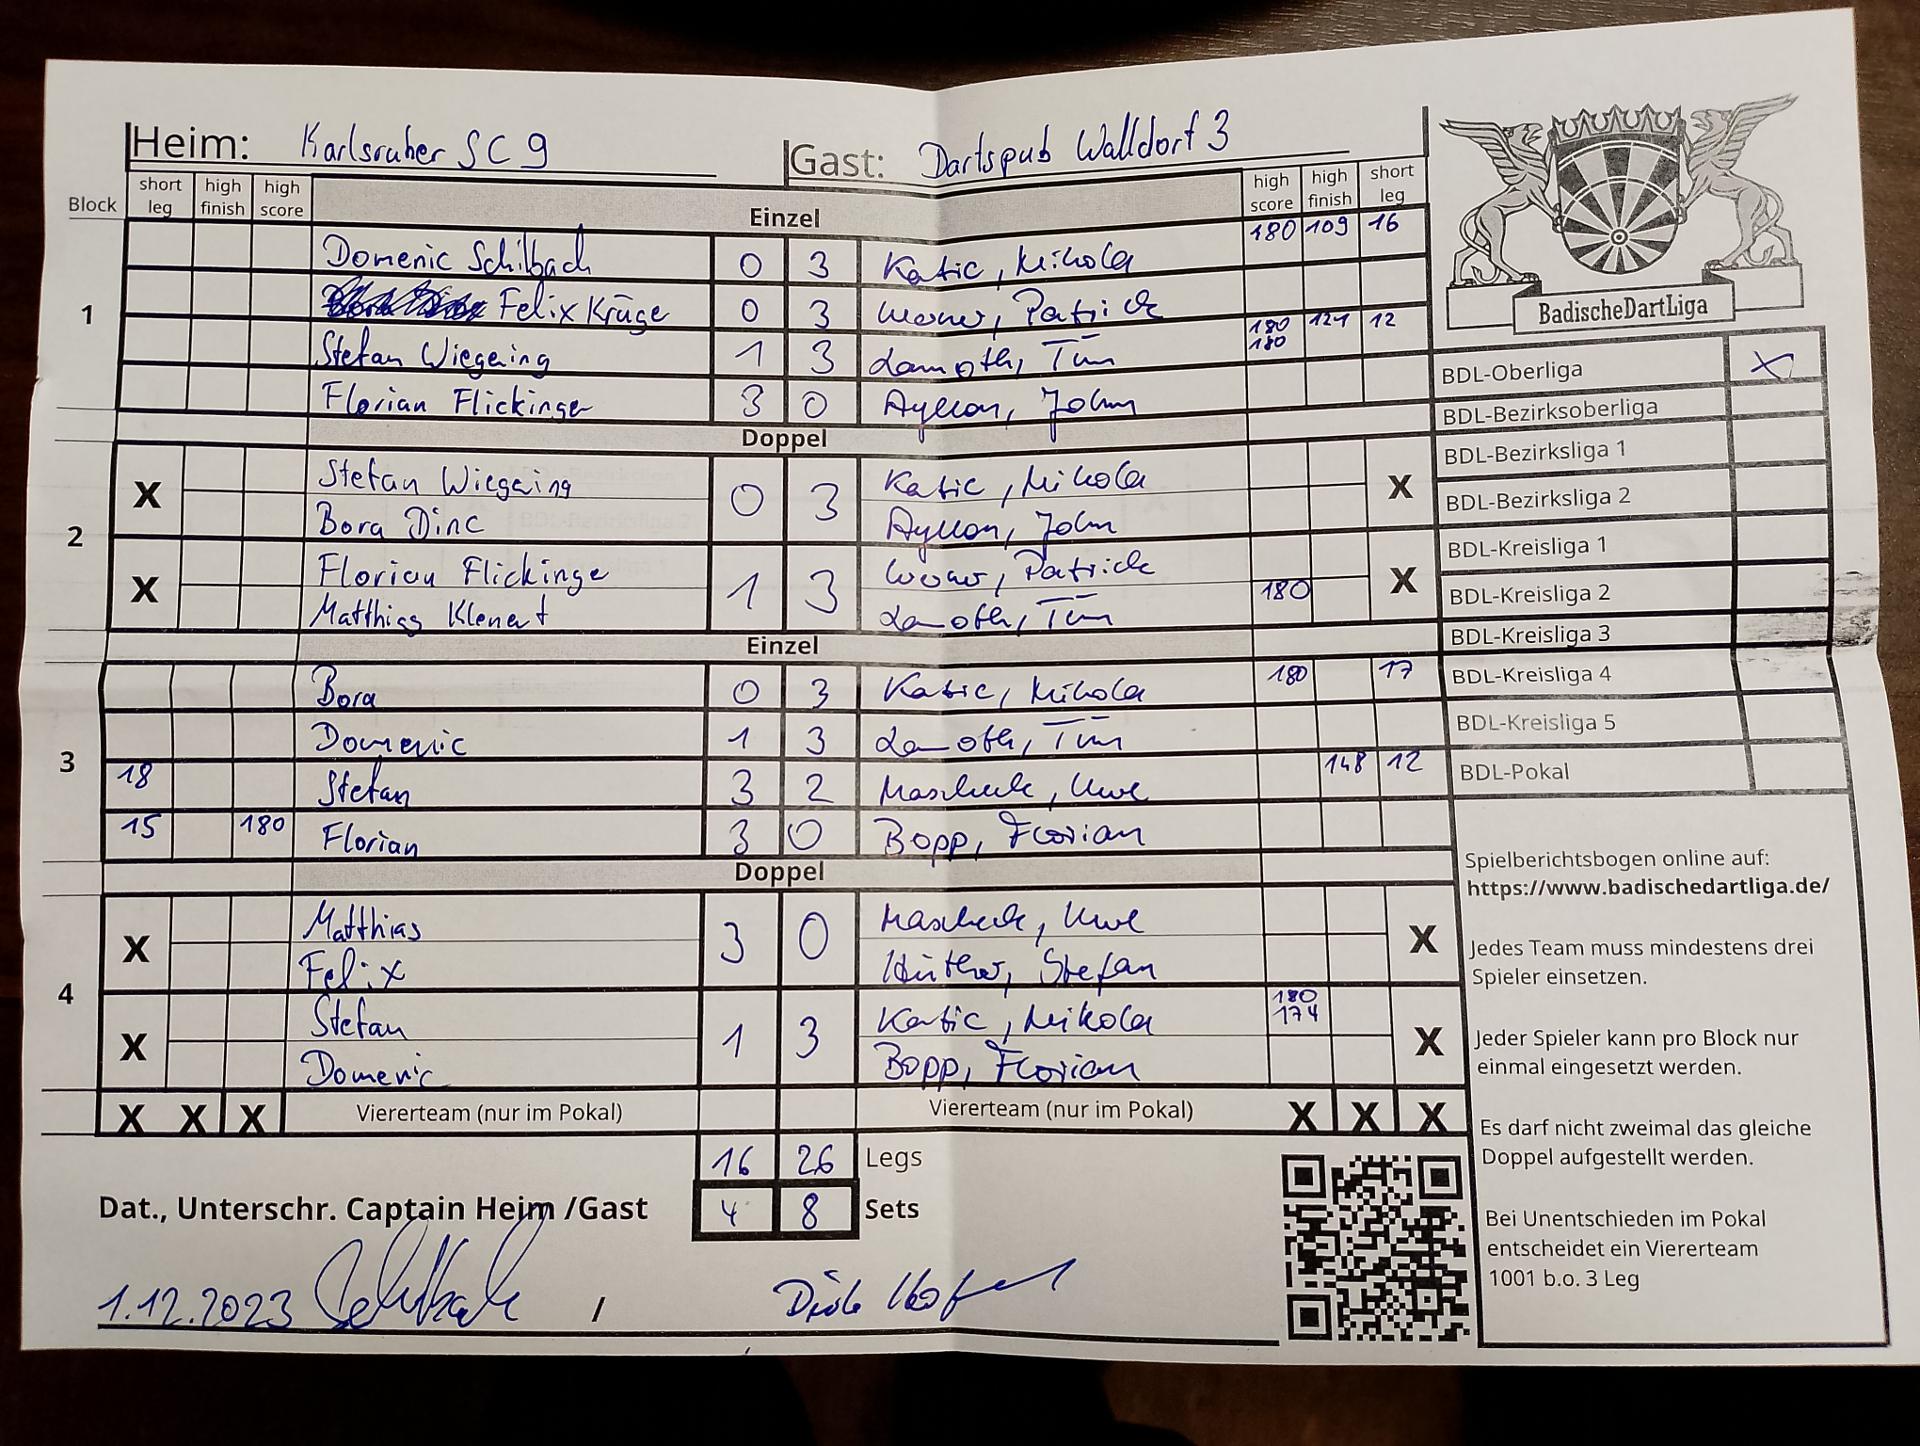 Heim: Karlsruher SC 9 Gast: Dartspub Walldorf 3
Block short leg high finish high score Einzel high score high finish short leg
Domenic Schilbach 0 3 Katic, Mikola 180 109 16
1 Felix Krüge 0 3 Patrick
Stefan Wiegering 1 3 Lamoth, Tim 180 180 121 12
Florian Flickinger 3 0 Ayllon, John
Doppel
2 X Stefan Wiegering 0 3 Katic, Mikola X
Bora Dinc Ayllon, John
X Florian Flickinge 1 3 Patrick X
Matthias Klenert Lamoth, Tim 180
Einzel
3 Bora 0 3 Katic, Mikola 180 17
Domenic 1 3 Lamoth, Tim
18 Stefan 3 2 Mascheck, Uwe 148 12
15 180 Florian 3 0 Bopp, Florian
Doppel
4 X Matthias 3 0 Mascheck, Uwe X
Felix Hüther, Stefan
X Stefan 1 3 Katic, Mikola 180 174 X
Domenic Bopp, Florian
X X X Viererteam (nur im Pokal) Viererteam (nur im Pokal) X X X
16 26 Legs
Dat., Unterschr. Captain Heim /Gast 4 8 Sets
1.12.2023 /
BadischeDartLiga
BDL-Oberliga X
BDL-Bezirksoberliga
BDL-Bezirksliga 1
BDL-Bezirksliga 2
BDL-Kreisliga 1
BDL-Kreisliga 2
BDL-Kreisliga 3
BDL-Kreisliga 4
BDL-Kreisliga 5
BDL-Pokal
Spielberichtsbogen online auf:
https://www.badischedartliga.de/
Jedes Team muss mindestens drei
Spieler einsetzen.
Jeder Spieler kann pro Block nur
einmal eingesetzt werden.
Es darf nicht zweimal das gleiche
Doppel aufgestellt werden.
Bei Unentschieden im Pokal
entscheidet ein Viererteam
1001 b.o. 3 Leg